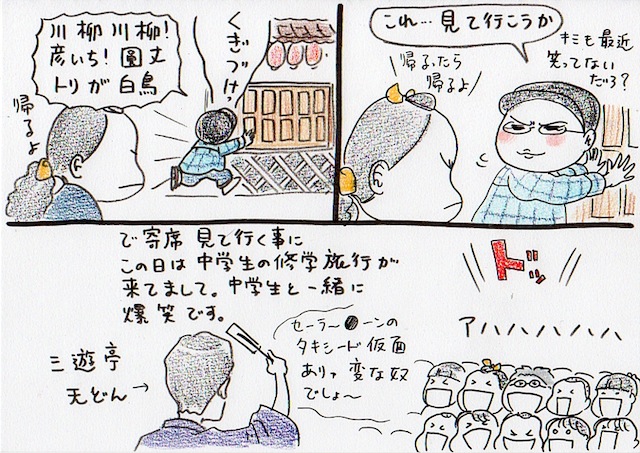 川柳川柳!
彦いち!圓丈
トリが白鳥
帰るよ
くぎづけっ
これ…見て行こうか
キミも最近
笑ってない
だろ?
帰るったら
帰るよ
で寄席見て行く事に
この日は中学生の修学旅行が
来てまして。中学生と一緒に
爆笑です。
三遊亭
天どん→
セーラー●ーンの
タキシード仮面
ありゃ変な奴
でしょ〜
ドッ
アハハハハハ